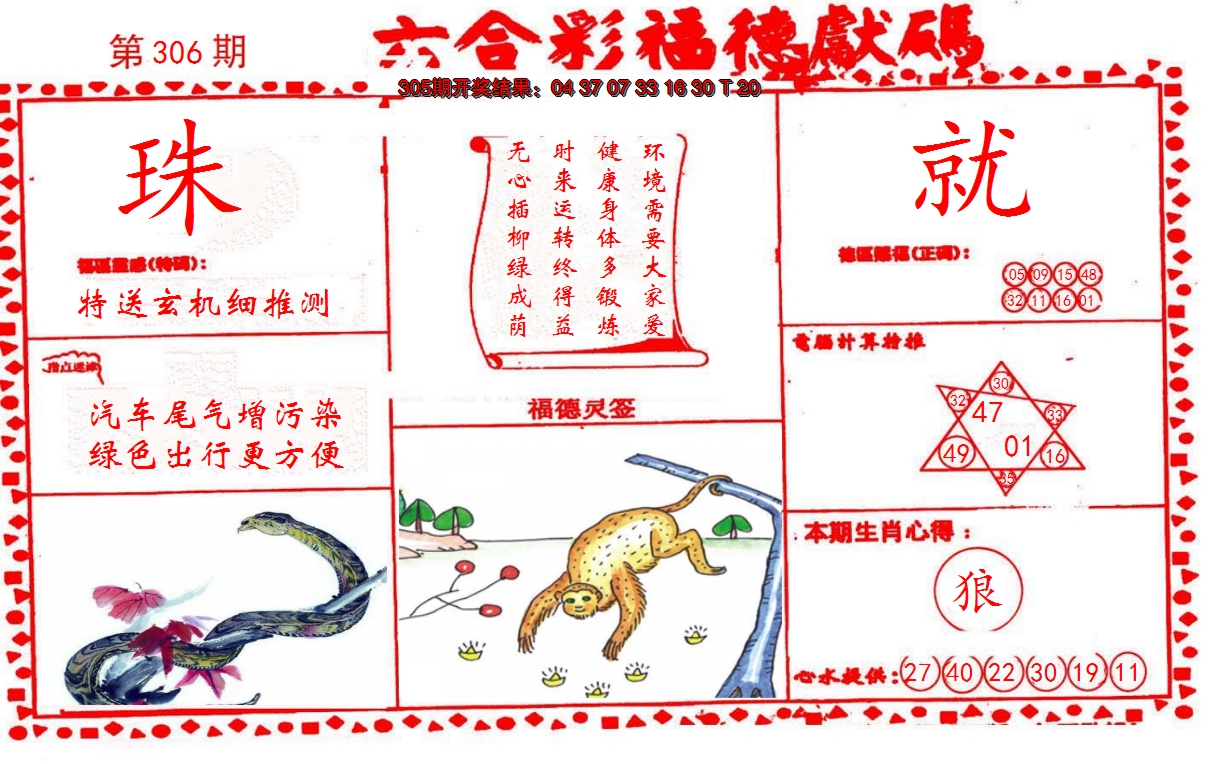 第306期
六合彩福德獻碼
305期开奖结果：04 37 07 33 16 30 T 20
珠
福區靈感(特碼)：
特送玄机细推测
指点迷津
汽车尾气增污染
绿色出行更方便
环境需要大家爱
健康身体多锻炼
时来运转终得益
无心插柳绿成荫
福德灵签
就
德區賜福(正碼)：
05 09 15 48
32 11 16 01
電腦計算推
30
32 47 33
49 01 16
35
本期生肖心得：
狼
心水提供：27 40 22 30 19 11